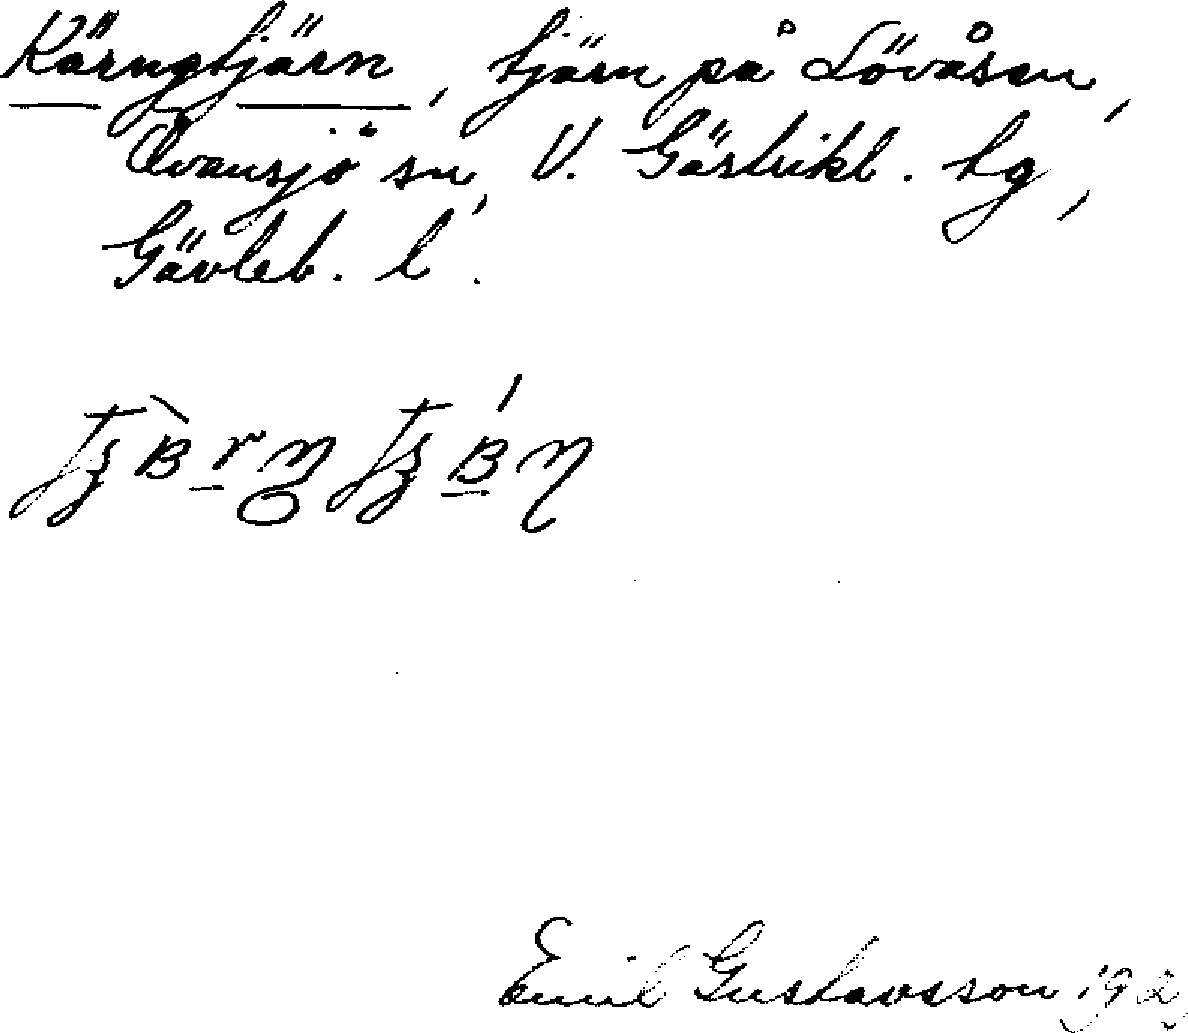 Kärngtjärn, tjärn på Lövåsen,
Ovansjö sn, V. Gästrikl. tg,
Gävleb. l.
Emil Gustavsson 192